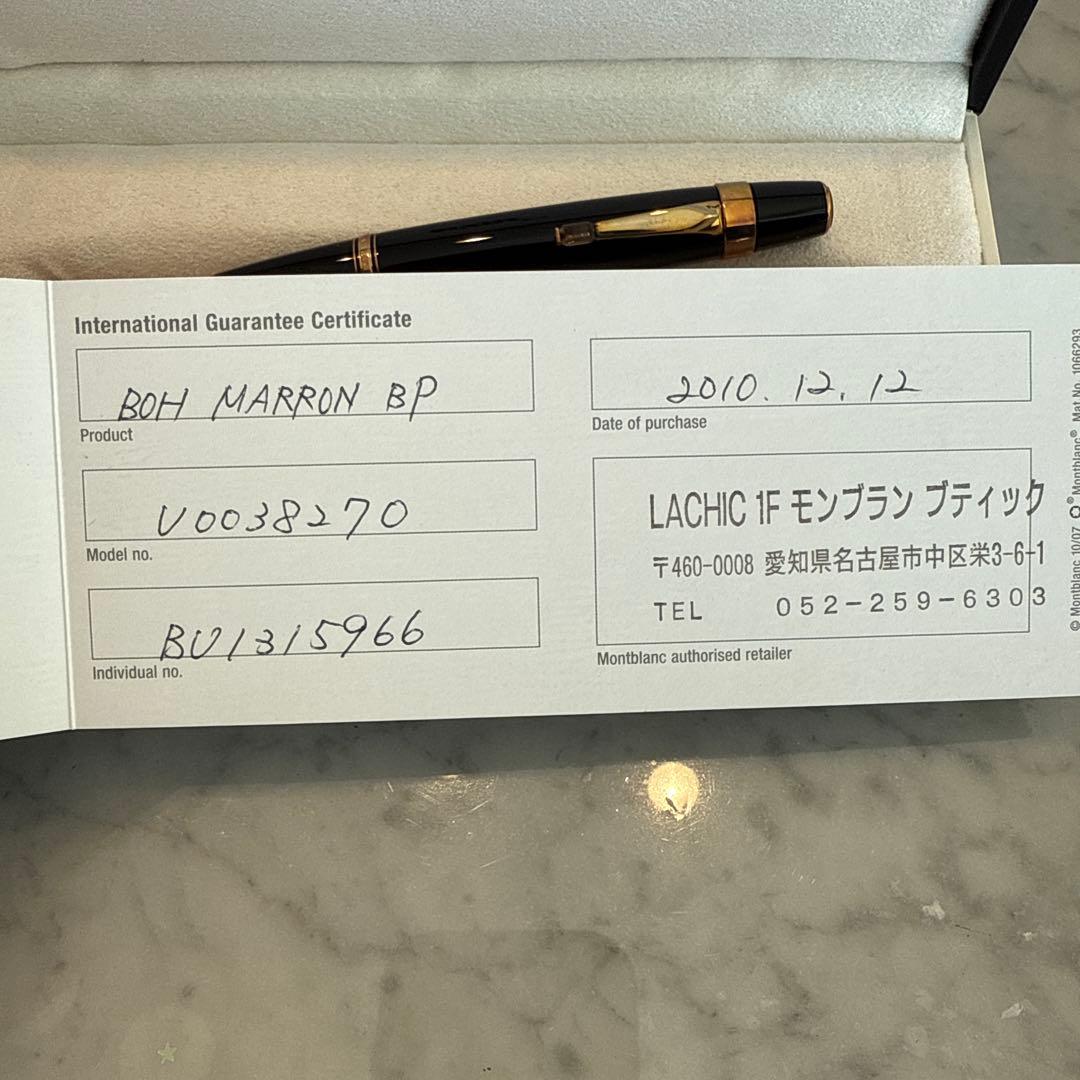 International Guarantee Certificate
BOH MARRON BP
Product
V0038270
Model no.
BU1315966
Individual no.
2010.12.12
Date of purchase
LACHIC 1F モンブラン ブティック
〒460-0008 愛知県名古屋市中区栄3-6-1
TEL 052-259-6303
Montblanc authorised retailer
© Montblanc 10/07 Montblanc® Mat No. 1066293